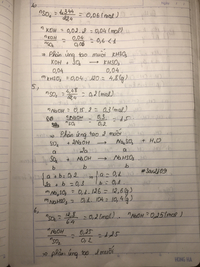 4.
nSO2 = 1,344/22,4 = 0,06 (mol)
nKOH = 0,02.2 = 0,04 (mol)
nKOH/nSO2 = 0,04/0,06 = 0,6 < 1
⇒ Phản ứng tạo muối KHSO3
KOH + SO2 → KHSO3
0,04 0,04
mKHSO3 = 0,04 . 120 = 4,8 (g)
5.
nSO2 = 4,48/22,4 = 0,2 (mol)
nNaOH = 0,15.2 = 0,3 (mol)
nNaOH/nSO2 = 0,3/0,2 = 1,5
⇒ Phản ứng tạo 2 muối
SO2 + 2NaOH → Na2SO3 + H2O
a 2a a
SO2 + NaOH → NaHSO3
b b b
a + b = 0,2 a = 0,1
2a + b = 0,3 b = 0,1
mNa2SO3 = 0,1.126 = 12,6 (g)
mNaHSO3 = 0,1.104 = 10,4 (g)
6.
nSO2 = 4,48/22,4 = 0,2 (mol) nNaOH = 0,25 (mol)
nNaOH/nSO2 = 0,25/0,2 = 1,25
⇒ phản ứng tạo 2 muối